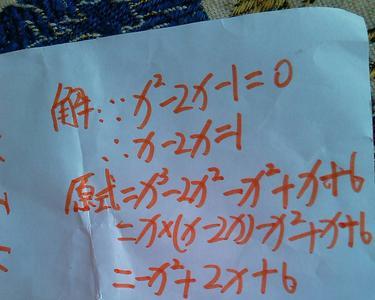 解:∵x²-2x-1=0
∴x-2x=1
原式=x³-2x²-x²+x+6
=x×(x-2x)-x²+x+6
=-x²+2x+6